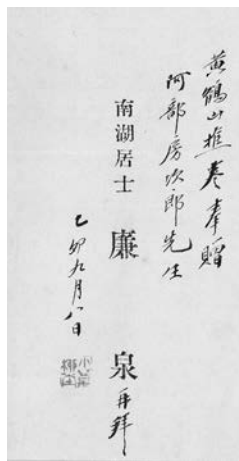 黄鶴山樵卷奉贈
阿部房次郎先生
南湖居士 廉 泉 再拜
乙卯九月八日